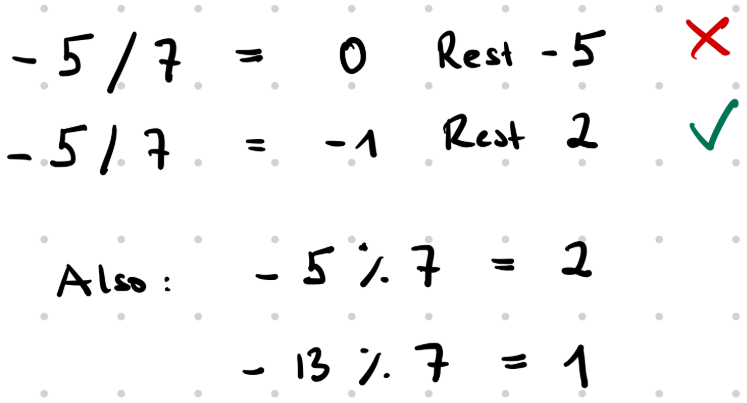 -5/7 = 0 Rest -5 ✗
-5/7 = -1 Rest 2 ✓
Also: -5 % 7 = 2
-13 % 7 = 1